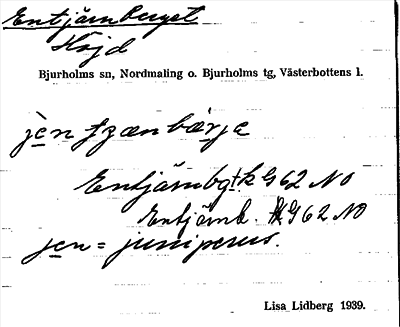 Entjärnberget
Höjd
Bjurholms sn, Nordmaling o. Bjurholms tg, Västerbottens l.
jèn tjæn bærje
Entjärnbgt. k G 62 NO
Entjärnb. k G 62 NO
jen = juniperus.
Lisa Lidberg 1939.